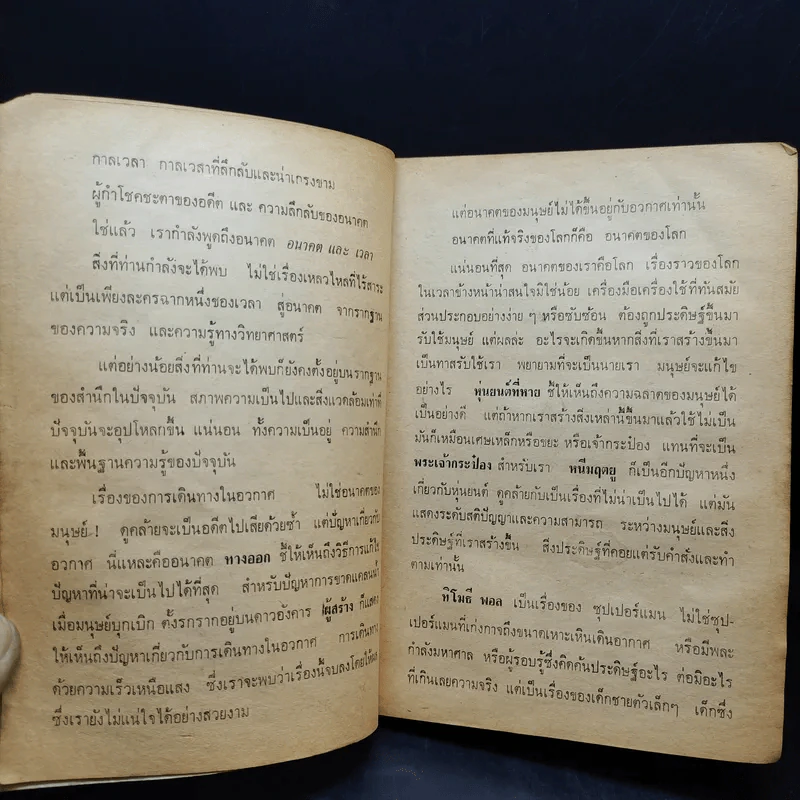 กาลเวลา กาลเวลาที่ลึกลับและน่าเกรงขาม
ผู้กำโชคชะตาของอดีต และ ความลึกลับของอนาคต
ใช่แล้ว เรากำลังพูดถึงอนาคต อนาคต และ เวลา
สิ่งที่ท่านกำลังจะได้พบ ไม่ใช่เรื่องเหลวไหลที่ไร้สาระ
แต่เป็นเพียงละครฉากหนึ่งของเวลา สู่อนาคต จากรากฐาน
ของความจริง และความรู้ทางวิทยาศาสตร์
แต่อย่างน้อยสิ่งที่ท่านจะได้พบก็ยังคงตั้งอยู่บนรากฐาน
ของสำนึกในปัจจุบัน สภาพความเป็นไปและสิ่งแวดล้อมเท่าที่
ปัจจุบันจะอุปโหลกขึ้น แน่นอน ทั้งความเป็นอยู่ ความสำนึก
และพื้นฐานความรู้ของปัจจุบัน
เรื่องของการเดินทางในอวกาศ ไม่ใช่อนาคตของ
มนุษย์ ! ดูคล้ายจะเป็นอดีตไปเสียด้วยซ้ำ แต่ปัญหาเกี่ยวกับ
อวกาศ นี่แหละคืออนาคต ทางออก ชี้ให้เห็นถึงวิธีการแก้ไข
ปัญหาที่น่าจะเป็นไปได้ที่สุด สำหรับปัญหาการขาดแคลนน้ำ
เมื่อมนุษย์บุกเบิก ตั้งรกรากอยู่บนดาวอังคาร ผู้สร้าง ก็แสดง
ให้เห็นถึงปัญหาเกี่ยวกับการเดินทางในอวกาศ การเดินทาง
ด้วยความเร็วเหนือแสง ซึ่งเราจะพบว่าเรื่องนี้จบลงโดยให้ผล
ซึ่งเรายังไม่แน่ใจได้อย่างสวยงาม
แต่อนาคตของมนุษย์ไม่ได้ขึ้นอยู่กับอวกาศเท่านั้น
อนาคตที่แท้จริงของโลกก็คือ อนาคตของโลก
แน่นอนที่สุด อนาคตของเราคือโลก เรื่องราวของโลก
ในเวลาข้างหน้าน่าสนใจมิใช่น้อย เครื่องมือเครื่องใช้ที่ทันสมัย
ส่วนประกอบอย่างง่าย ๆ หรือซับซ้อน ต้องถูกประดิษฐ์ขึ้นมา
รับใช้มนุษย์ แต่ผลล่ะ อะไรจะเกิดขึ้นหากสิ่งที่เราสร้างขึ้นมา
เป็นทาสรับใช้เรา พยายามที่จะเป็นนายเรา มนุษย์จะแก้ไข
อย่างไร หุ่นยนต์ที่หาย ชี้ให้เห็นถึงความฉลาดของมนุษย์ได้
เป็นอย่างดี แต่ถ้าหากเราสร้างสิ่งเหล่านี้ขึ้นมาแล้วใช้ไม่เป็น
มันก็เหมือนเศษเหล็กหรือขยะ หรือเจ้ากระป๋อง แทนที่จะเป็น
พระเจ้ากระป๋อง สำหรับเรา หนีมฤตยู ก็เป็นอีกปัญหาหนึ่ง
เกี่ยวกับหุ่นยนต์ ดูคล้ายกับเป็นเรื่องที่ไม่น่าเป็นไปได้ แต่มัน
แสดงระดับสติปัญญาและความสามารถ ระหว่างมนุษย์และสิ่ง
ประดิษฐ์ที่เราสร้างขึ้น สิ่งประดิษฐ์ที่คอยแต่รับคำสั่งและทำ
ตามเท่านั้น
ทิโมธี พอล เป็นเรื่องของ ซุปเปอร์แมน ไม่ใช่ซุป-
เปอร์แมนที่เก่งกาจถึงขนาดเหาะเหินเดินอากาศ หรือมีพละ
กำลังมหาศาล หรือผู้รอบรู้ซึ่งคิดค้นประดิษฐ์อะไร ต่อมิอะไร
ที่เกินเลยความจริง แต่เป็นเรื่องของเด็กชายตัวเล็กๆ เด็กซึ่ง